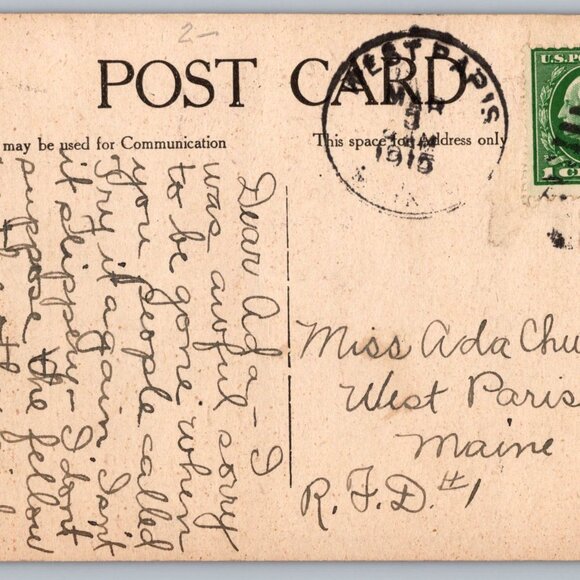 2-
POST CARD
may be used for Communication
This space for Address only
WEST PARIS
MAR
9
1915
U.S. PO
1 CE
Dear Ada - I
was awful sorry
to be gone when
you people called
Try it again. Isn't
it slippery - I don't
suppose the fellow
Miss Ada Chu
West Paris
Maine
R.F.D. #1